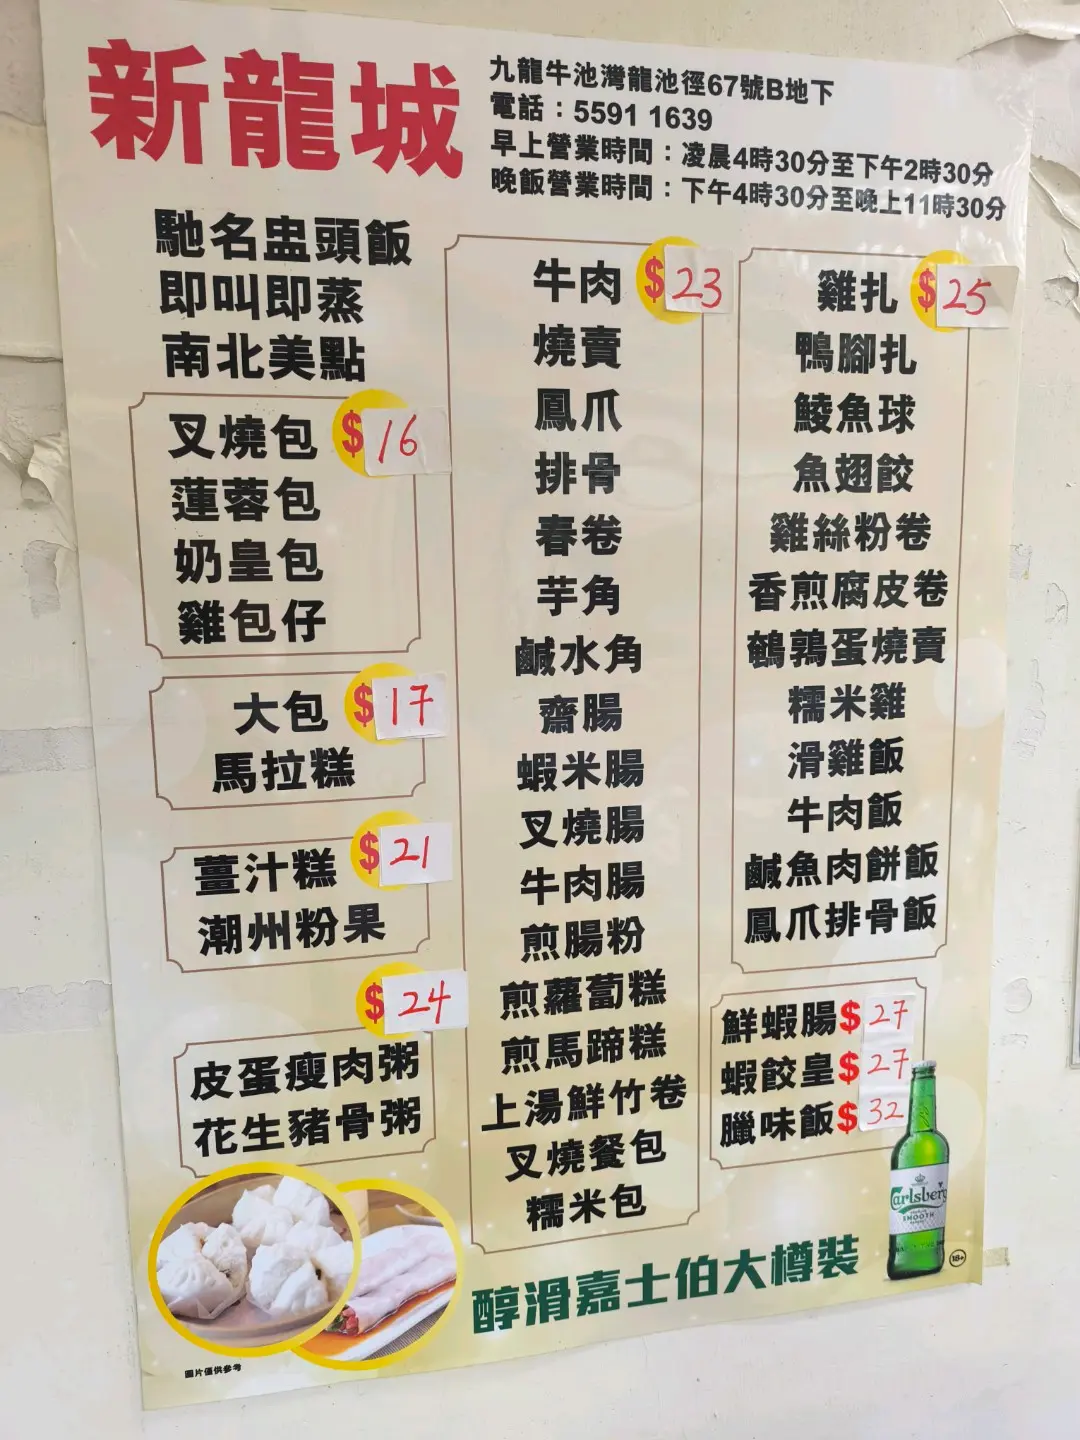 新龍城
九龍牛池灣龍池徑67號B地下
電話：5591 1639
早上營業時間：凌晨4時30分至下午2時30分
晚飯營業時間：下午4時30分至晚上11時30分
馳名盅頭飯
即叫即蒸
南北美點
叉燒包 $16
蓮蓉包
奶皇包
雞包仔
大包 $17
馬拉糕
薑汁糕 $21
潮州粉果
$24
皮蛋瘦肉粥
花生豬骨粥
牛肉 $23
燒賣
鳳爪
排骨
春卷
芋角
鹹水角
齋腸
蝦米腸
叉燒腸
牛肉腸
煎腸粉
煎蘿蔔糕
煎馬蹄糕
上湯鮮竹卷
叉燒餐包
糯米包
雞扎 $25
鴨腳扎
鯪魚球
魚翅餃
雞絲粉卷
香煎腐皮卷
鵪鶉蛋燒賣
糯米雞
滑雞飯
牛肉飯
鹹魚肉餅飯
鳳爪排骨飯
鮮蝦腸$27
蝦餃皇$27
臘味飯$32
Carlsberg
SMOOTH
18+
醇滑嘉士伯大樽裝
圖片僅供參考